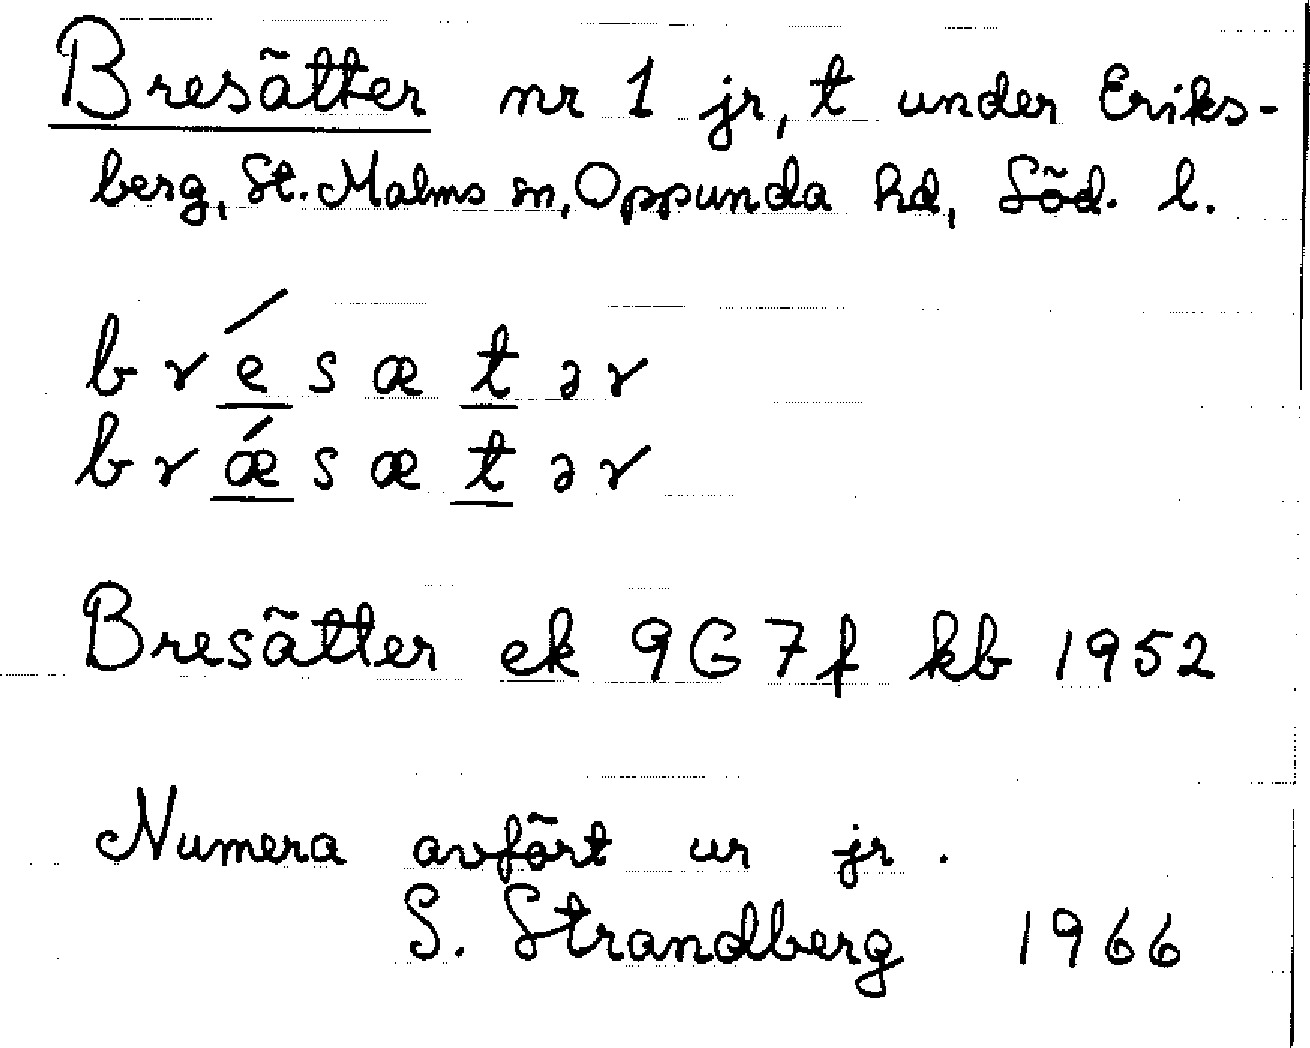 Bresätter nr 1 jr, t under Eriks-
berg, St. Malms sn, Oppunda hd, Söd. l.
brésætər
brǽsætər
Bresätter ek 9G7f kb 1952
Numera avfört ur jr.
S. Strandberg 1966